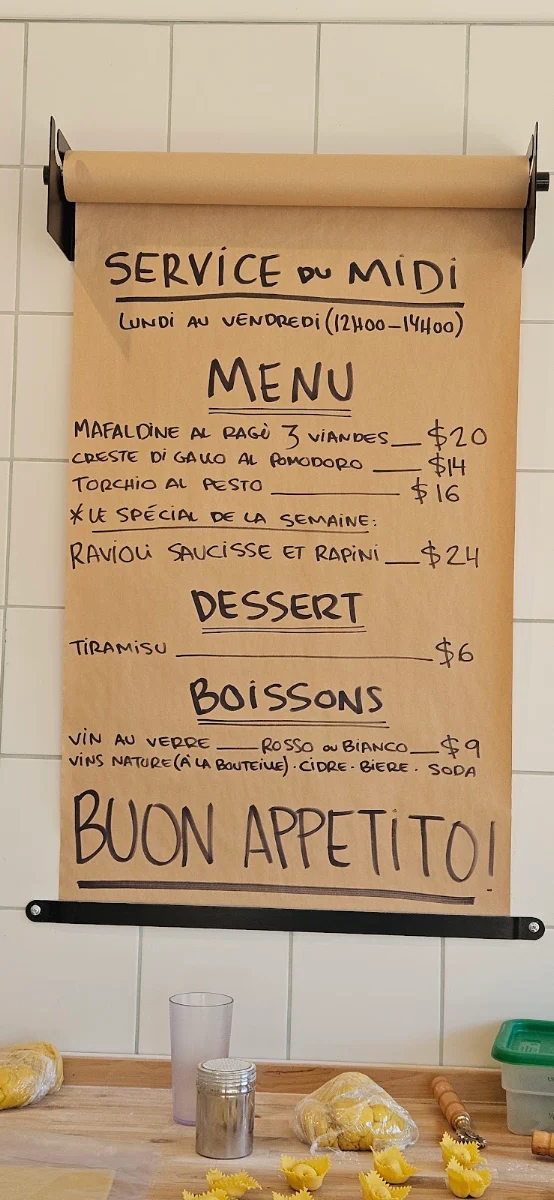 SERVICE DU MIDI
LUNDI AU VENDREDI (12H00-14H00)
MENU
MAFALDINE AL RAGÙ 3 VIANDES $20
CRESTE DI GALLO AL POMODORO $14
TORCHIO AL PESTO $16
*LE SPÉCIAL DE LA SEMAINE:
RAVIOLI SAUCISSE ET RAPINI $24
DESSERT
TIRAMISU $6
BOISSONS
VIN AU VERRE ROSSO OU BIANCO $9
VINS NATURE (À LA BOUTEILLE) · CIDRE · BIERE · SODA
BUON APPETITO!